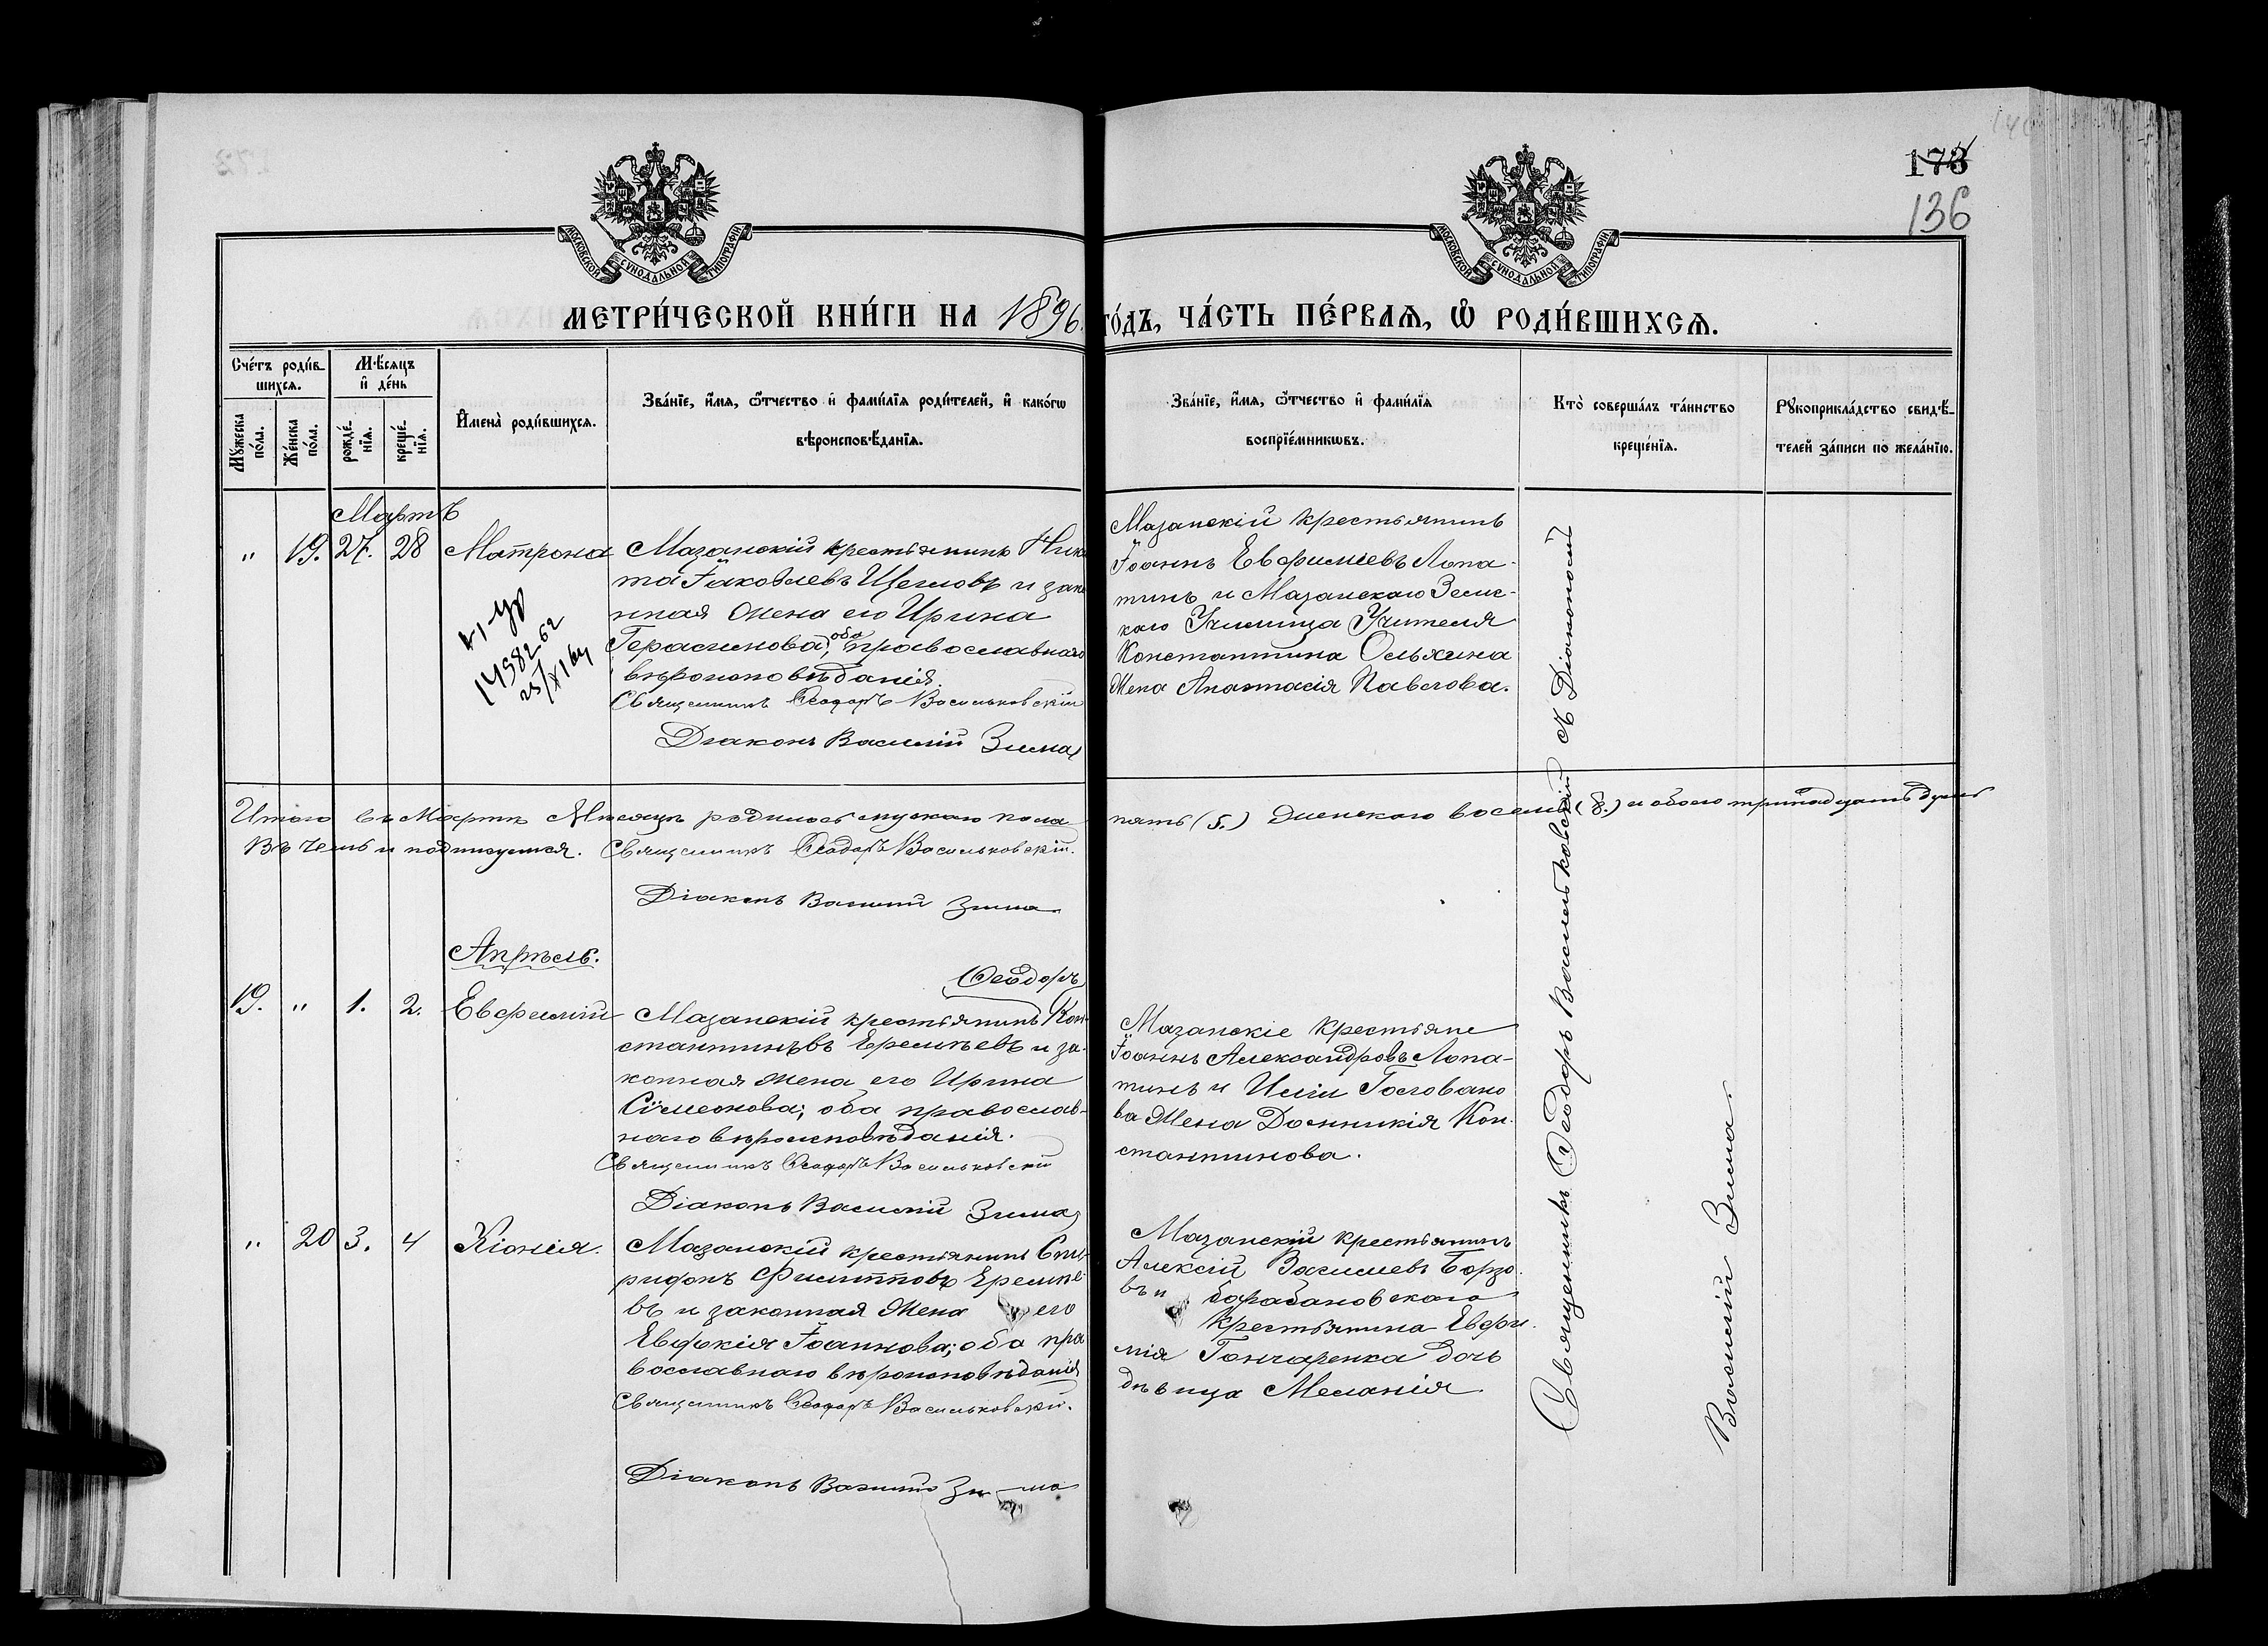 173
136
МОСКОВСКОЙ СУНОДАЛЬНОЙ ТИПОГРАФІИ
МОСКОВСКОЙ СУНОДАЛЬНОЙ ТИПОГРАФІИ
МЕТРИ́ЧЕСКОЙ КНИ́ГИ НА 1896
ГО́ДЪ, ЧА́СТЬ ПЕ́РВАѦ, Ѡ҆ РОДИ́ВШИХСѦ.
Сче́тъ роди́в-
шихся.
Мꙋ́жеска
по́ла.
Же́нска
по́ла.
М·ѣ́сяцъ
и҆ де́нь
рожде́-
нїѧ.
креще́-
нїѧ.
И҆мена̀ роди́вшихся.
Зва́нїе, и҆́мѧ, ѻ҆́тчество и҆ фами́лїѧ роди́телей, и҆ како́гѡ
вѣроисповѣ́данїѧ.
Зва́нїе, и҆́мѧ, ѻ҆́тчество и҆ фами́лїѧ
воспрїе́мникѡвъ.
Кто̀ соверша́лъ та́инство
креще́нїѧ.
Рꙋкоприкла́дство свидѣ́-
телей за́писи по жела́нїю.
Мартъ
" 19. 27. 28 Матрона
Мазанскій крестьянинъ Ники
та Іаковлевъ Щегловъ и зако
нная жена его Ирина
Герасимова, оба православнаго
вѣроисповѣданія.
Священникъ Ѳеодоръ Васильковскій
Діаконъ Василій Зима
14982-62
25/XI 64
Мазанскій крестьянинъ
Іоаннъ Евфиміевъ Лопа-
тинъ и Мазанскаго Земс-
каго Училища Учителя
Константина Ольхина
жена Анастасія Павлова.
Итого въ Мартѣ Мѣсяцѣ родилось мужскаго пола
пять (5.) женскаго восемь (8.) и обоего тринадцать душъ
Въ чемъ и подписуемся. Священникъ Ѳеодоръ Васильковскій.
Діаконъ Василій Зима
Апрѣль.
19. " 1. 2. Евфимій
Ѳеодоръ
Мазанскій крестьянинъ Кон-
стантиновъ Еремѣевъ и за-
конная жена его Ирина
Сѵмеонова; оба православ-
наго вѣроисповѣданія.
Священникъ Ѳеодоръ Васильковскій
Діаконъ Василій Зима
Мазанскіе Крестьяне
Іоаннъ Александровъ Лопа-
тинъ и Иліи Голговано
ва жена Домникія Кон-
стантинова.
" 20 3. 4 Хіонія.
Мазанскій крестьянинъ Спи-
ридонъ Филипповъ Еремѣе-
въ и законная жена его
Евдокія Іоаннова; оба пра
вославнаго вѣроисповѣданія
Священникъ Ѳеодоръ Васильковскій.
Діаконъ Василій Зима
Мазанскій крестьянинъ
Алексій Васильевъ Борзо
въ и барабановскаго
крестьянина Евфи
мія Гончаренка дочь
дѣвица Меланія
Священникъ Ѳеодоръ Васильковскій съ Діакономъ
Василій Зима.